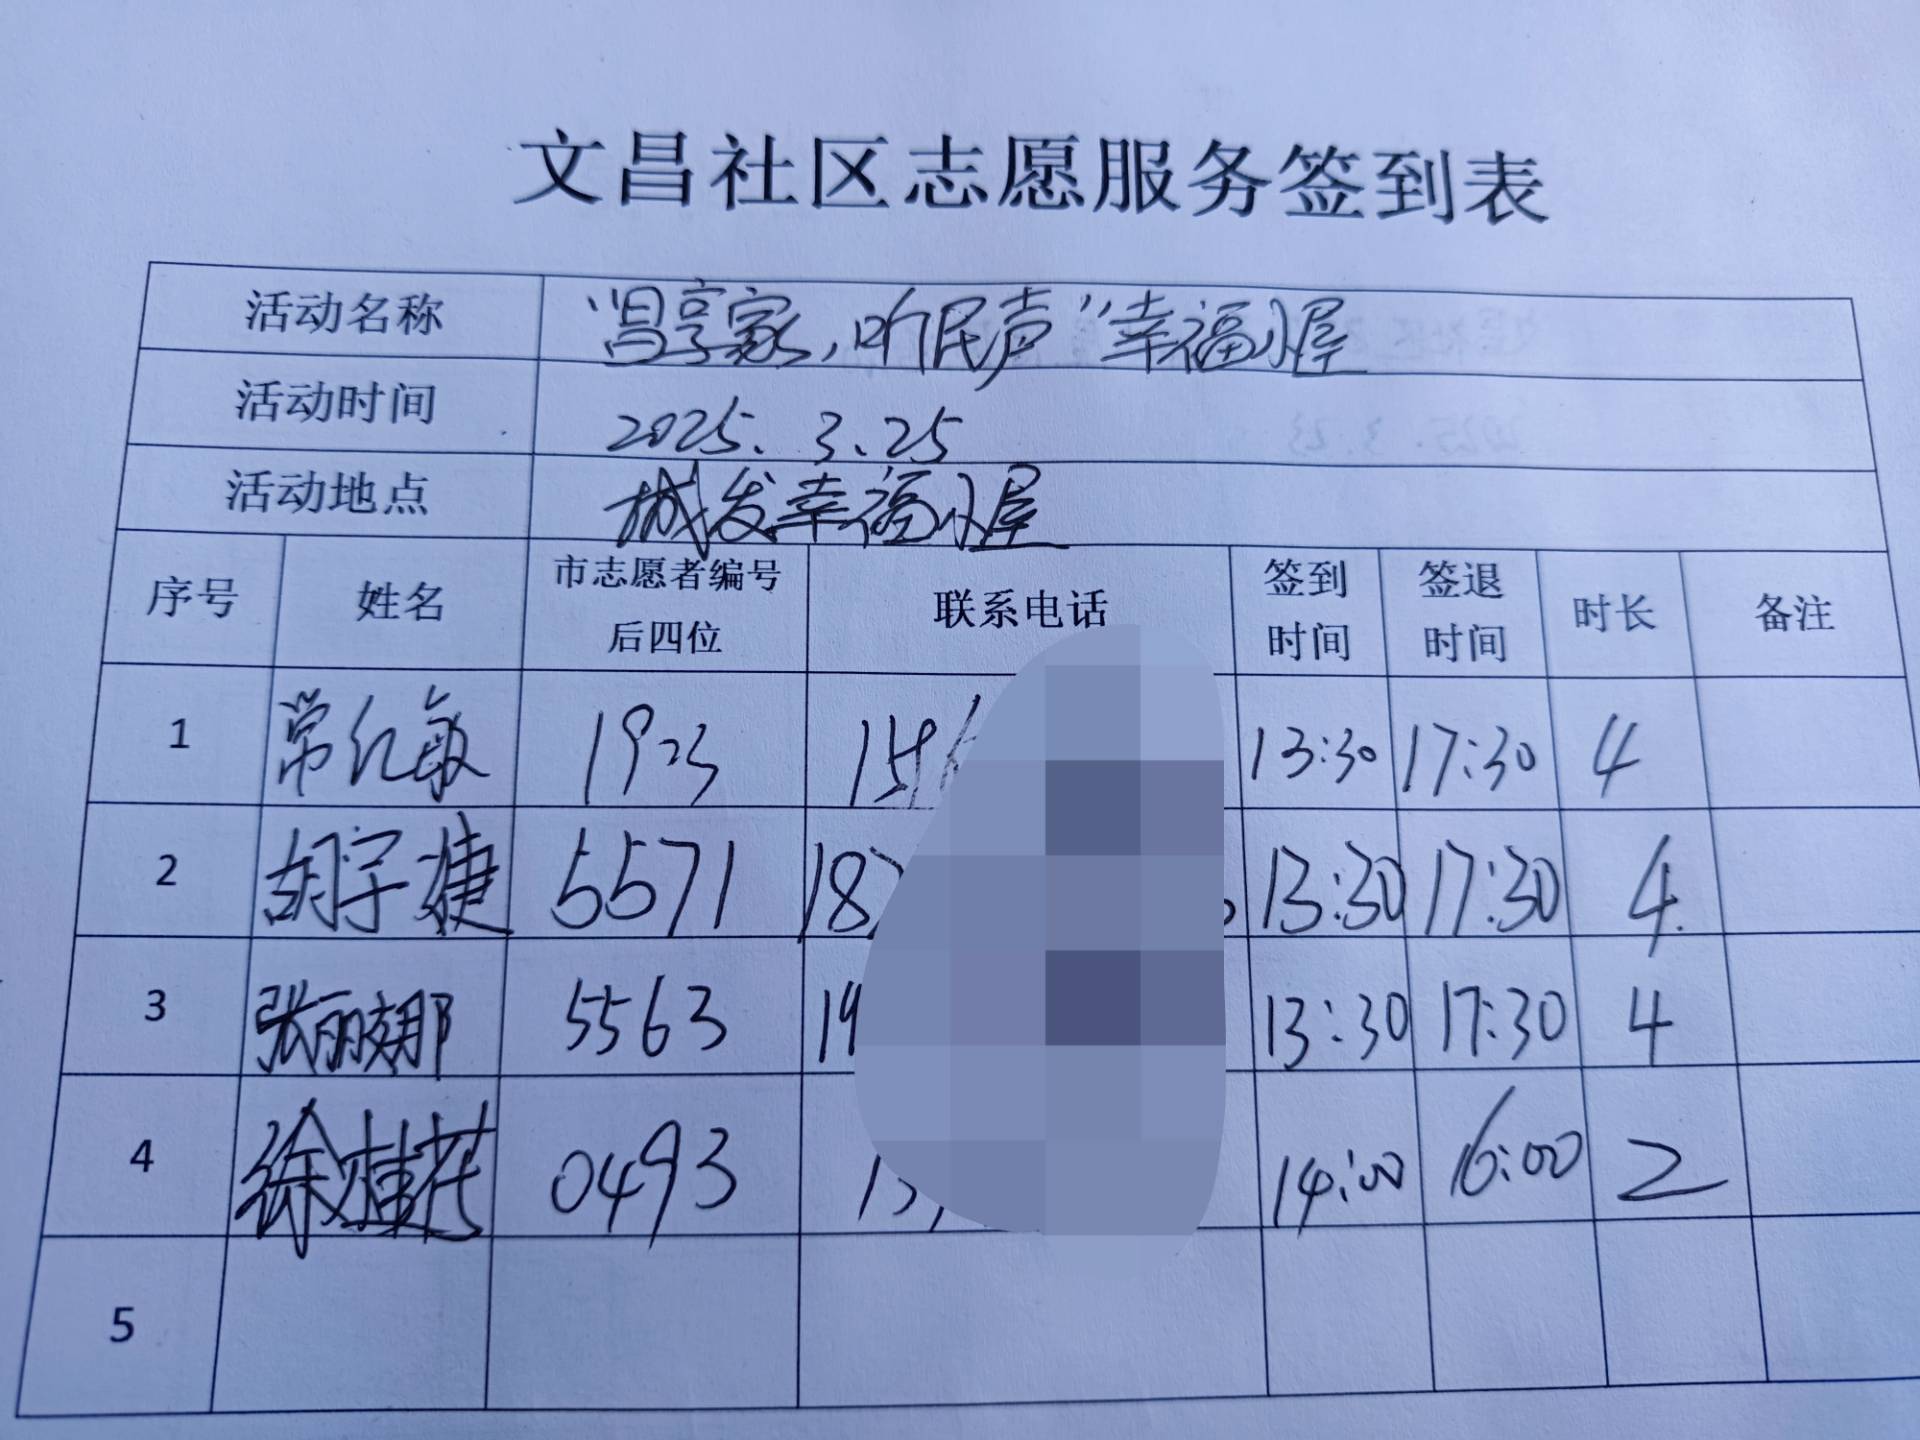 文昌社区志愿服务签到表
活动名称 “昌享家，听民声”幸福小屋
活动时间 2025.3.25
活动地点 城发幸福小屋
序号 姓名 市志愿者编号后四位 联系电话 签到时间 签退时间 时长 备注
1 常红敏 1923 156 13:30 17:30 4
2 胡宇婕 5571 187 13:30 17:30 4
3 张丽娜 5563 19 13:30 17:30 4
4 徐桂花 0493 13 14:00 16:00 2
5